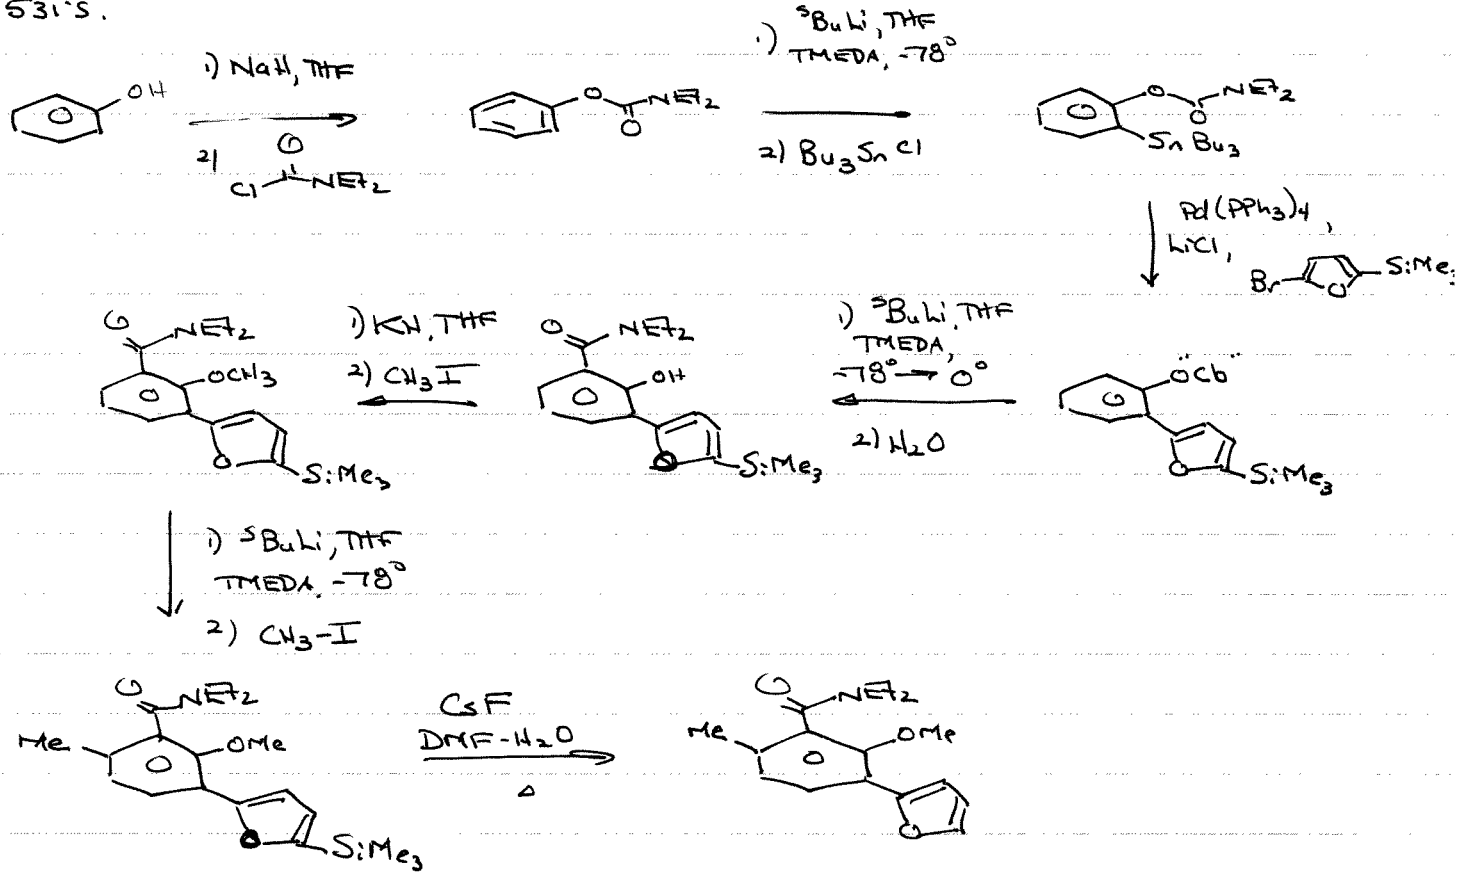 531'S.
1) NaH, THF
OH
2)
O
Cl
NEt2
O
NEt2
O
1) sBuLi, THF
TMEDA, -78°
2) Bu3SnCl
O
NEt2
O
SnBu3
Pd(PPh3)4,
LiCl,
Br
O
SiMe3
"OCb"
O
SiMe3
1) sBuLi, THF
TMEDA,
-78° → 0°
2) H2O
O
NEt2
OH
O
SiMe3
1) KH, THF
2) CH3I
O
NEt2
OCH3
O
SiMe3
1) sBuLi, THF
TMEDA, -78°
2) CH3-I
O
NEt2
Me
OMe
O
SiMe3
CsF
DMF-H2O
Δ
O
NEt2
Me
OMe
O